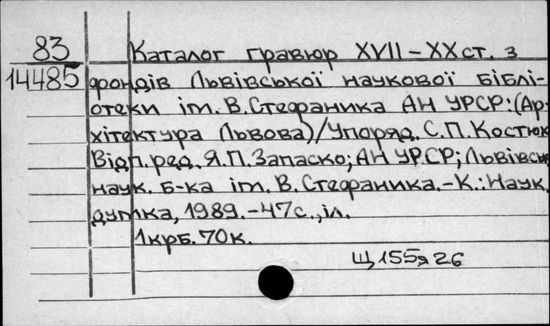 83 Каталог гравюр XVII-XX ст. з
14485 фондів Львівської наукової біблі-
отеки ім. В. Стефаника АН УРСР: (Ар-
хітектура Львова)/Упоряд. С.П. Костюк
Відп. ред. Я.П. Запаско; АН УРСР; Львівсь
наук. б-ка ім. В. Стефаника.-К.: Наук.
думка, 1989.-47с., іл.
1крб. 70к.
Щ155я26